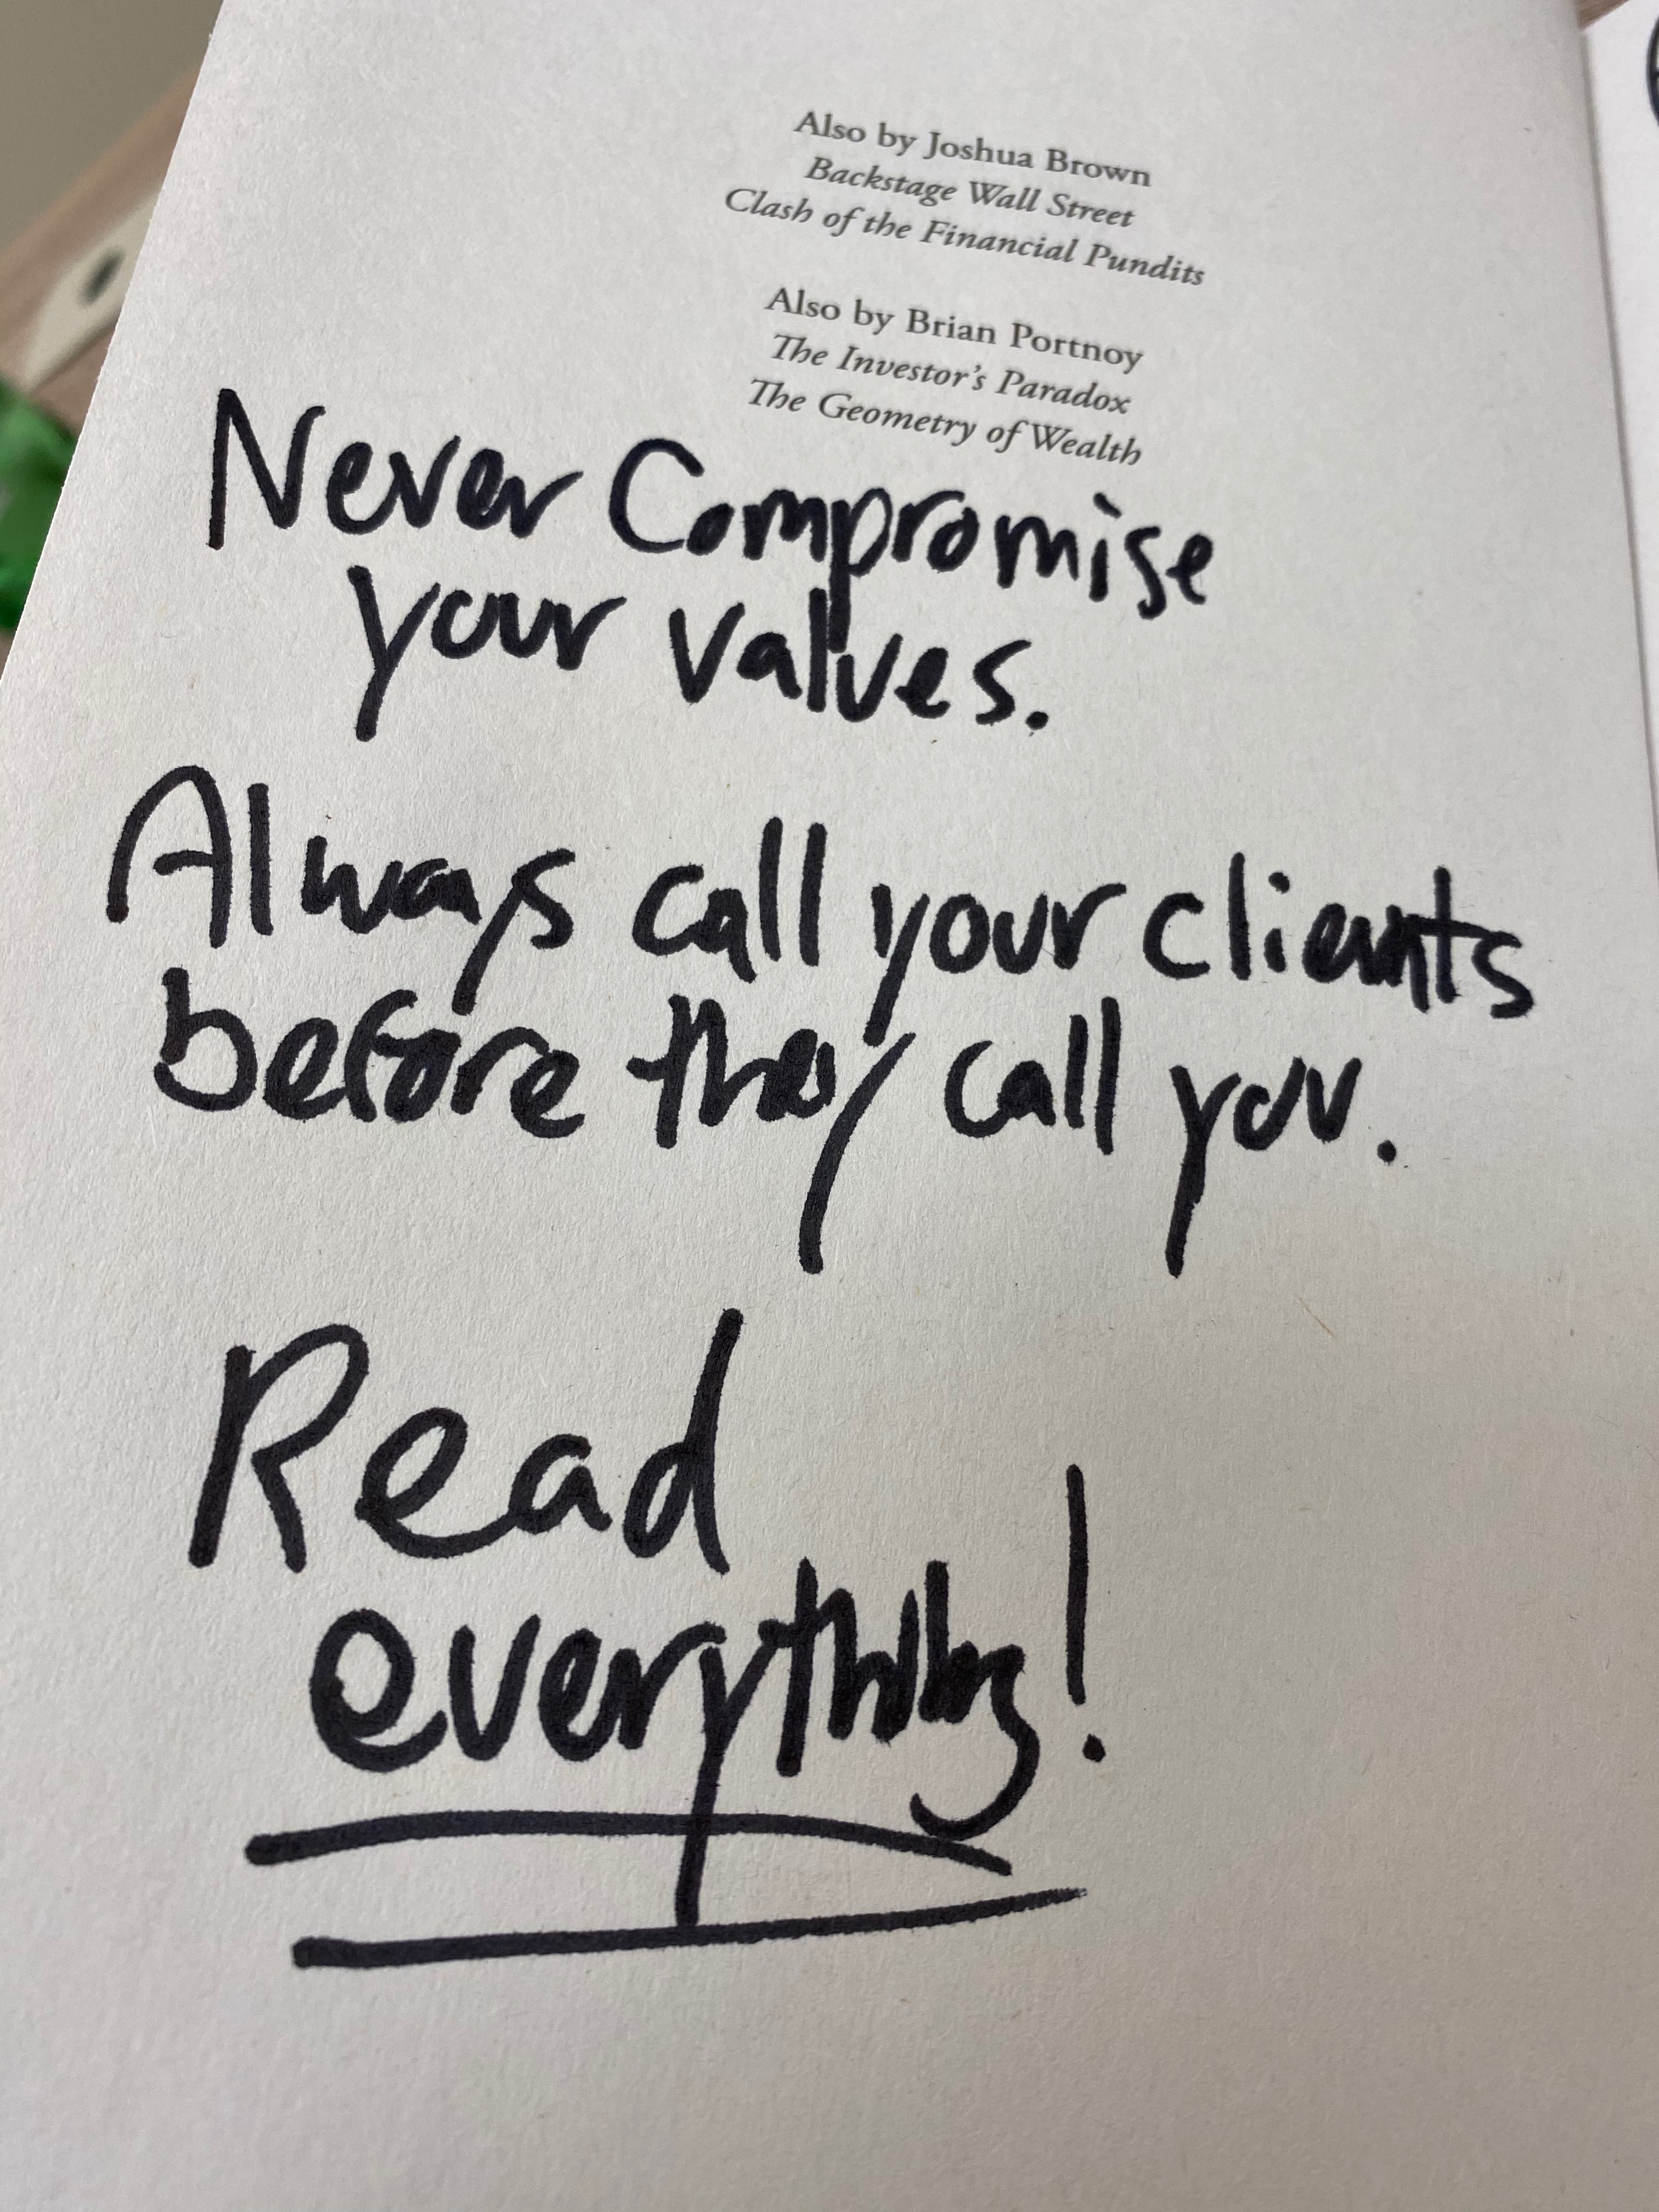 Also by Joshua Brown
Backstage Wall Street
Clash of the Financial Pundits
Also by Brian Portnoy
The Investor's Paradox
The Geometry of Wealth
Never Compromise
your values.
Always call your clients
before they call you.
Read
everything!